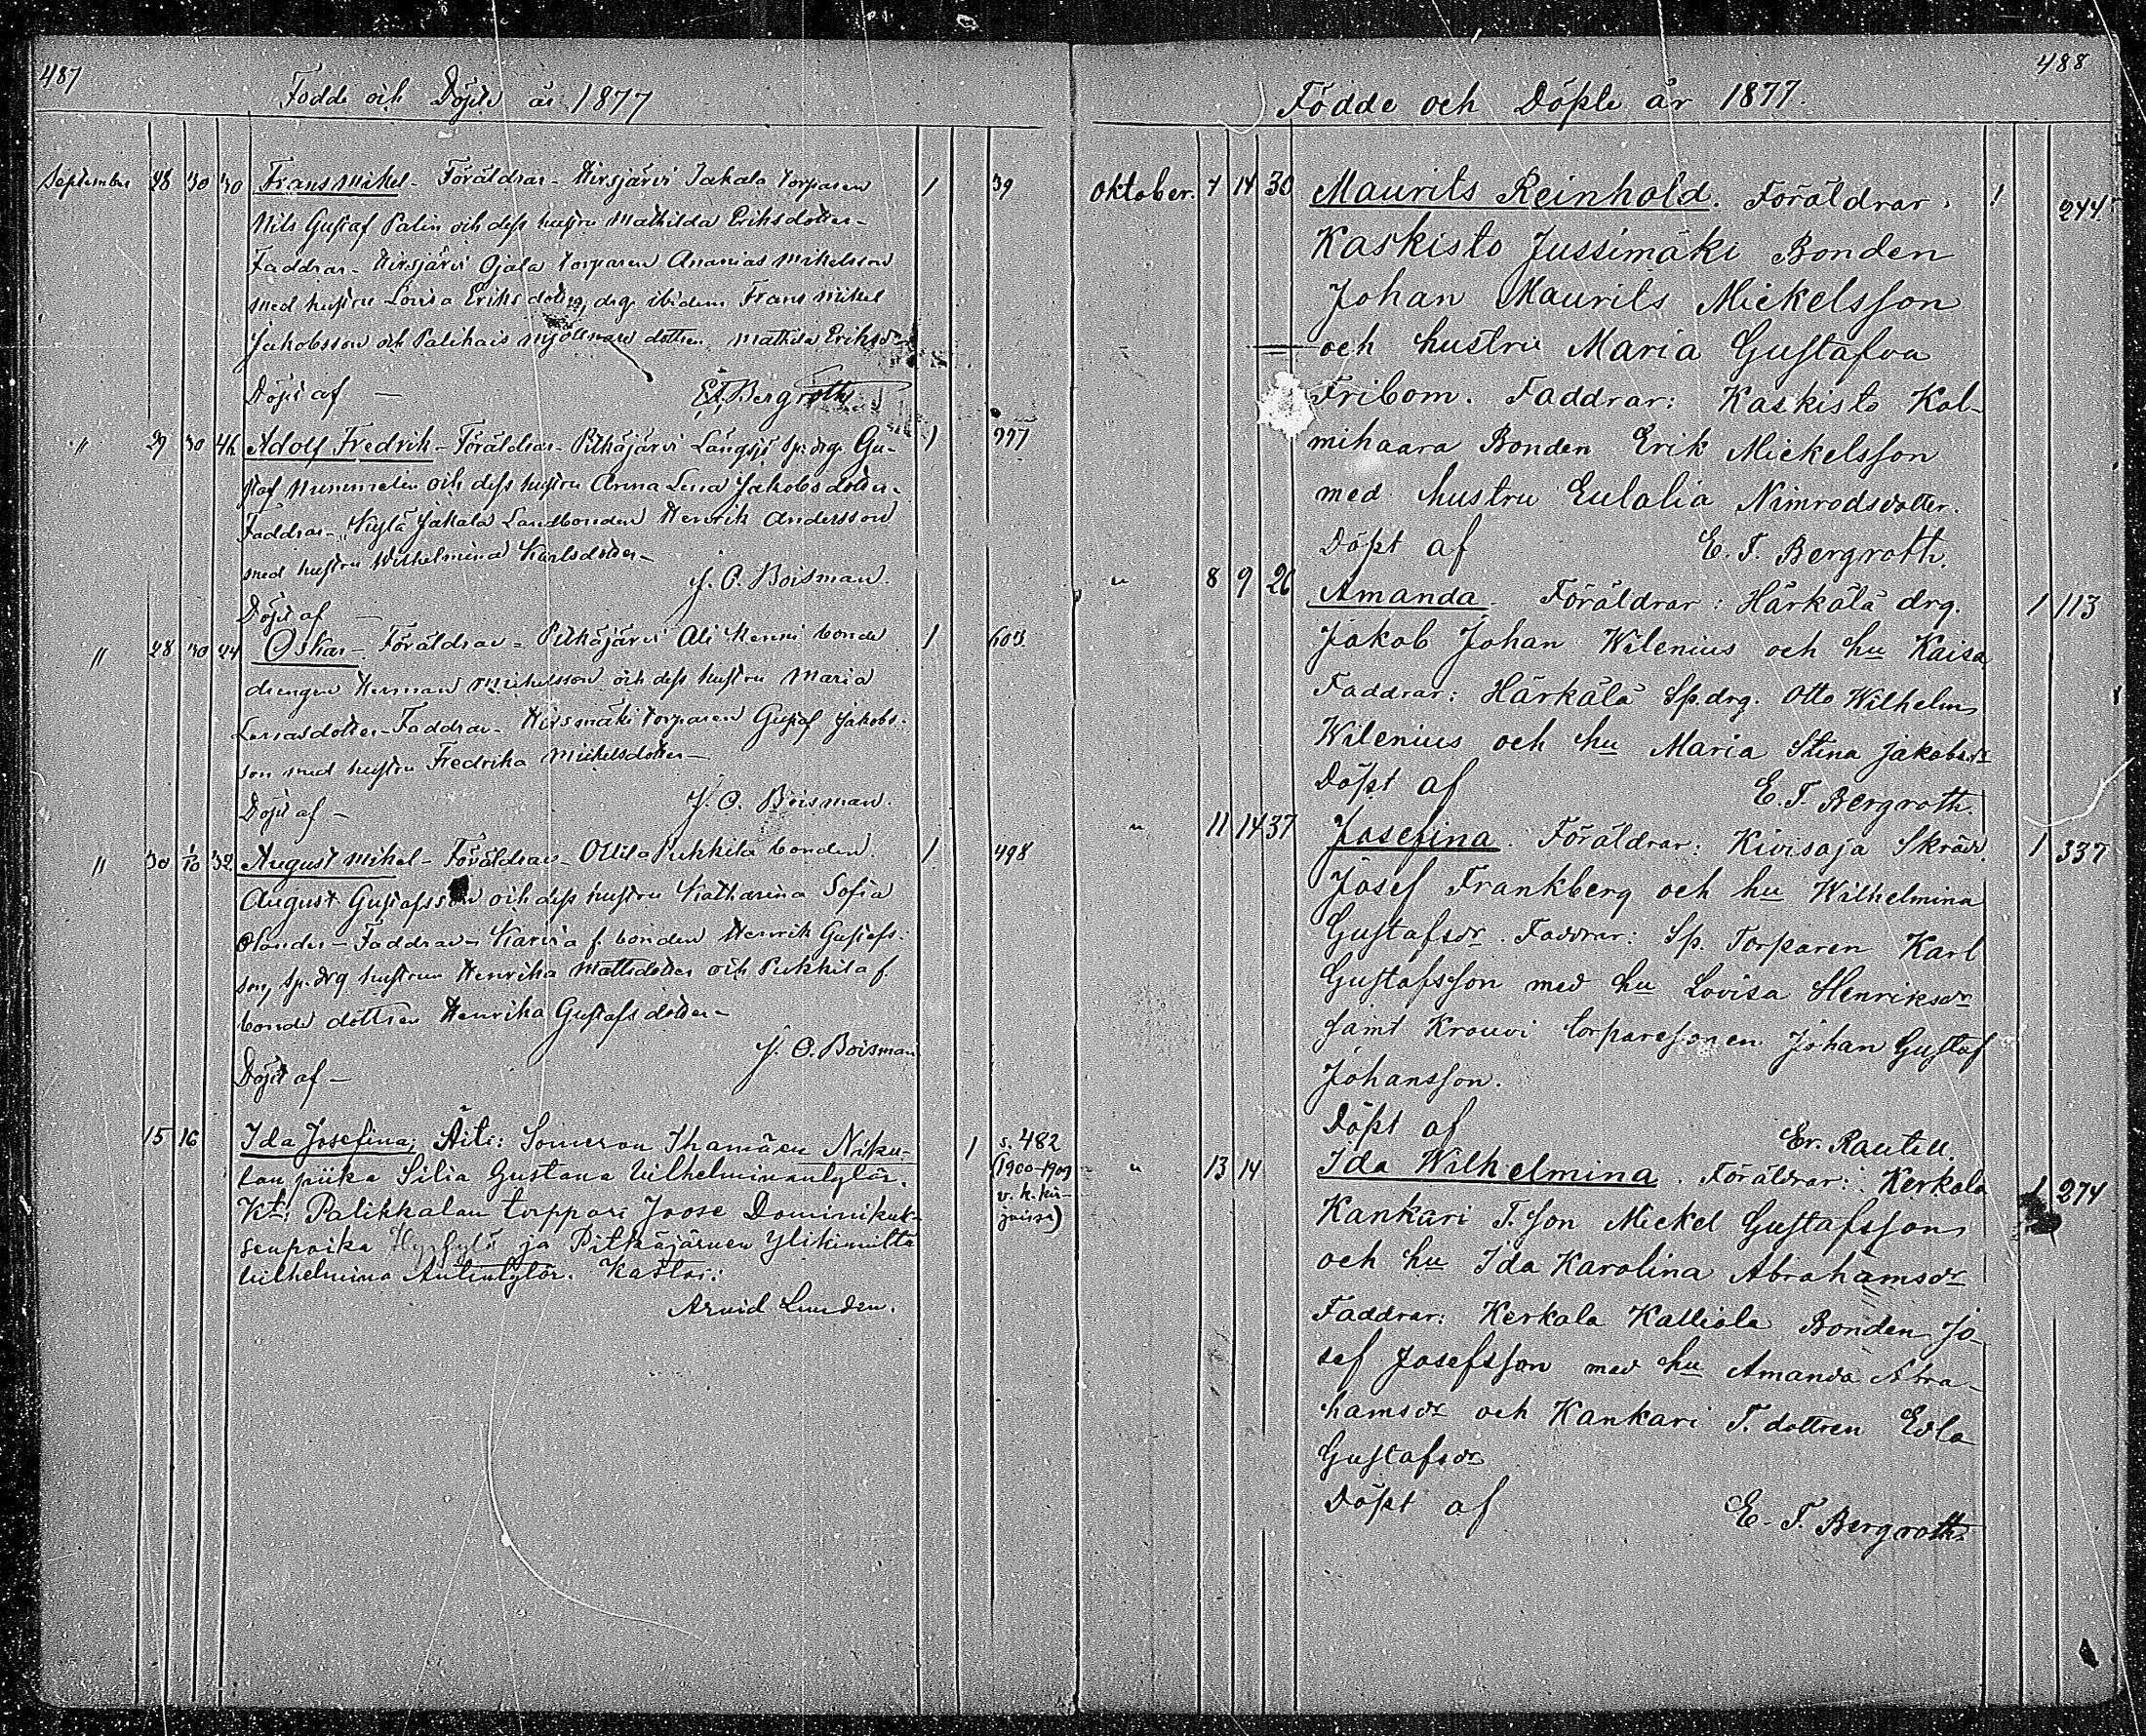 487
Födde och Döpte år 1877
September 28 30 30 Frans Mikel - Föräldrar - Hirsjärvi Jakala torparen 1 39
Nils Gustaf Palin och dess hustru Mathilda Eriksdotter -
Faddrar - Hirsjärvi Ojala torparen Ananias Mikelsson
med hustru Lovisa Eriksdotter, drg. ibidem Frans Mikel
Jakobsson och Palikais mjölnare dottren Mathilda Eriksdr
Döpt af — E.T. Bergroth
" 29 30 46 Adolf Fredrik - Föräldrar - Pitkäjärvi Långsjö sp. drg. Gu- 1 997
staf Nummelin och dess hustru Anna Lena Jakobsdotter -
Faddrar - Kylä Jakala Landbonden Henrik Andersson
med hustru Wilhelmina Karlsdotter -
J. O. Boisman.
Döpt af —
" 28 30 24 Oskar - Föräldrar - Pitkäjärvi Ali Kenni bonde 1 603
drengen Herman Mickelsson och dess hustru Maria
dotter - Faddrar - Hirsmäki torparen Gustaf Jakobs-
son med hustru Fredrika Mickelsdotter -
Döpt af — J. O. Boisman.
" 30 1/10 32 August Mikel - Föräldrar - Ollila Pukkila bonden 1 498
August Gustafsson och dess hustru Katharina Sofia
Olander - Faddrar - Karvia f. bonden Henrik Gustafs-
son, sp. drg hustrun Henrika Mattsdotter och Pukkila f.
bonde dottren Henrika Gustafsdotter -
J. O. Boisman
Döpt af —
15 16 Ida Josefina; Äiti: Someron Ihamäen Niku- 1 s. 482
lan piika Silia Gustava Vilhelminantytär. (1900-1909
Kt: Palikkalan torppari Joose Dominikuk- v. k. kir-
senpoika Hyrkylä ja Pitkäjärven Ylikimiltä jaissa)
Vilhelmina Antintytär. Kastoi:
Arvid Lunden.
488
Födde och Döpte år 1877.
Oktober. 7 14 30 Maurits Reinhold. Föräldrar: 1 244
Kaskisto Jussimäki Bonden
Johan Maurits Mickelsson
och hustru Maria Gustafva
Fribom. Faddrar: Kaskisto Kol-
mihaara Bonden Erik Mickelsson
med hustru Eulalia Nimrodsdotter.
Döpt af E. T. Bergroth.
" 8 9 26 Amanda. Föräldrar: Härkälä drg. 1 113
Jakob Johan Wilenius och hu Kaisa
Faddrar: Härkälä Sp. drg. Otto Wilhelm
Wilenius och hu Maria Stina Jakobsdr
Döpt af E. T. Bergroth.
" 11 14 37 Josefina. Föräldrar: Kivisoja Skrädd. 1 337
Josef Frankberg och hu Wilhelmina
Gustafsdr. Faddrar: Sp. Torparen Karl
Gustafsson med hu Lovisa Henriksdr
samt Krouvi torparesonen Johan Gustaf
Johansson.
Döpt af Er. Rautell.
" 13 14 Ida Wilhelmina. Föräldrar: Kerkola 1 274
Kankari T. son Mickel Gustafsson
och hu Ida Karolina Abrahamsdr
Faddrar: Kerkola Kalliola Bonden Jo-
sef Josefsson med hu Amanda Abra-
hamsdr och Kankari T. dottren Edla
Gustafsdr
Döpt af E. T. Bergroth.